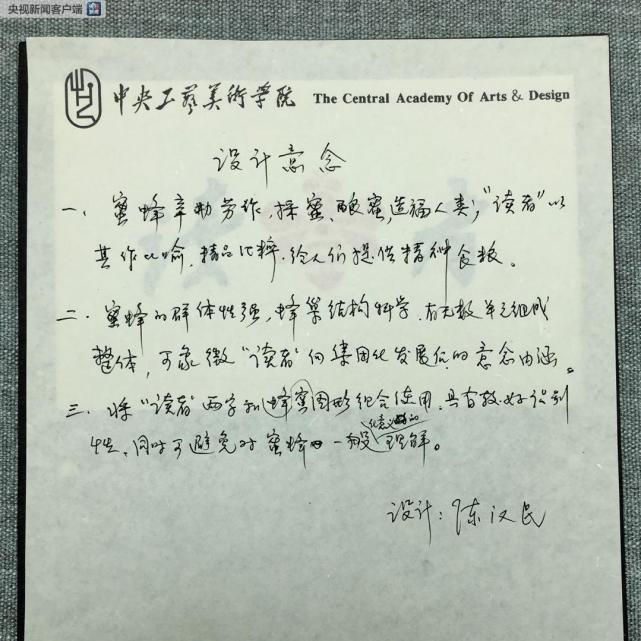 央视新闻客户端
中央工艺美术学院 The Central Academy Of Arts & Design
设计意念
一、蜜蜂辛勤劳作,採蜜、酿蜜,造福人类,"读者"以
其作比喻,精品化粹,给人们提供精神食粮。
二、蜜蜂的群体性强,蜂巢结构科学,有无数单元组成
整体,可象徵"读者"向集团化发展的意念内涵。
三、将"读者"两字和蜂蜜图形组合使用,具有较好识别
性,同时可避免对蜜蜂一般化意义的理解。
设计:陈汉民